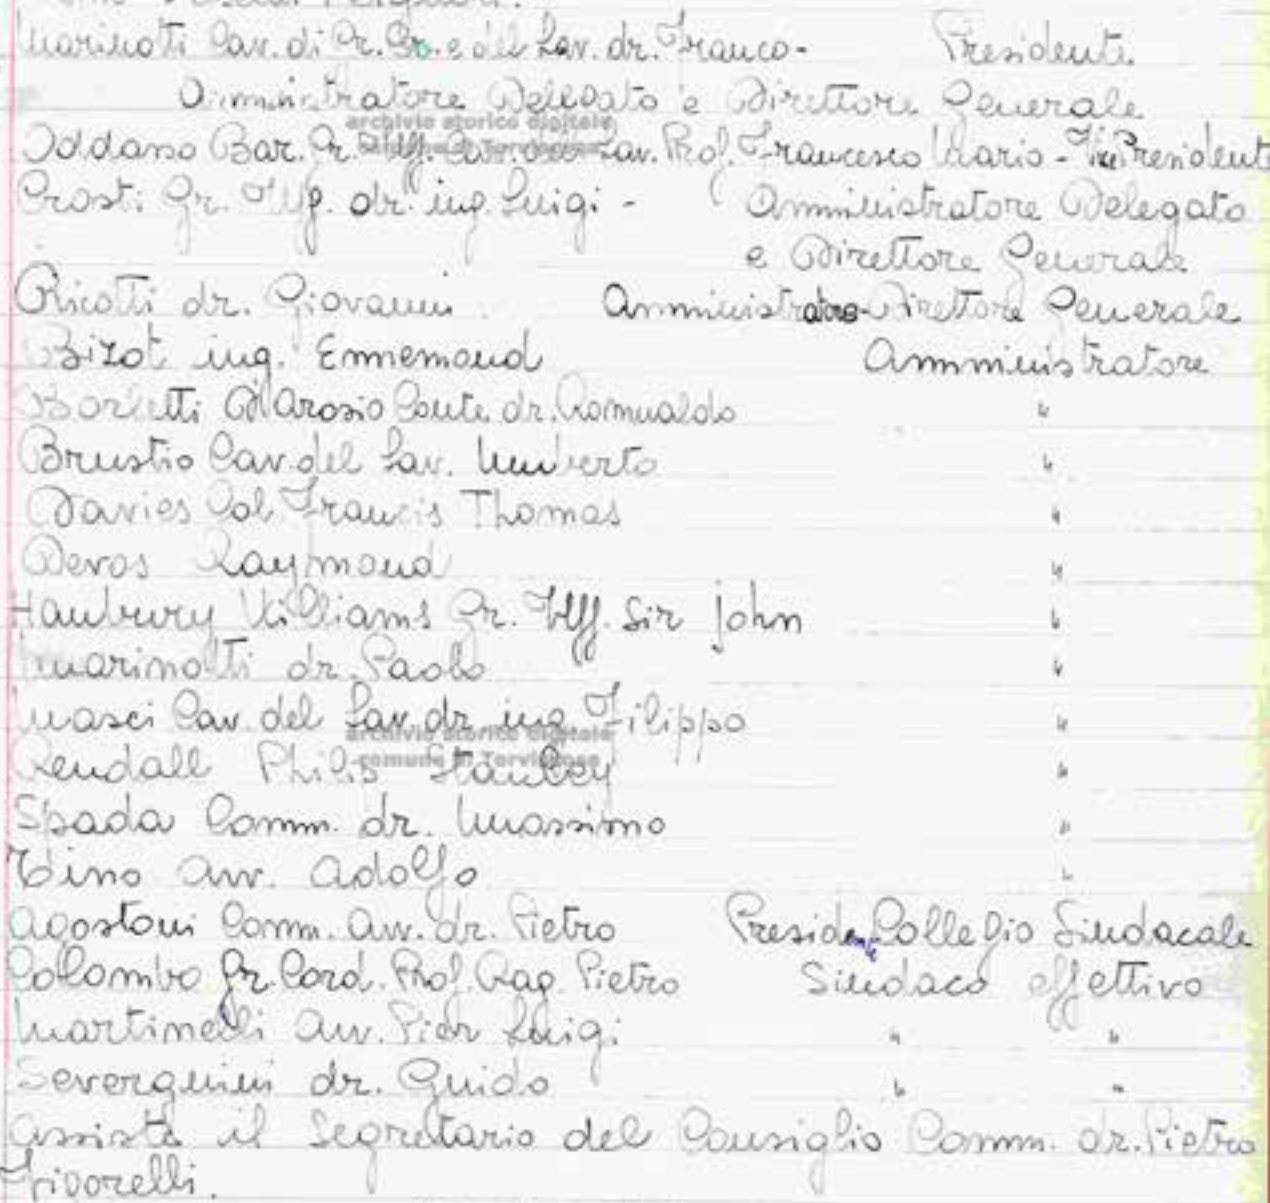 Marinotti Cav. di Gr. Cr. e del Lav. dr. Franco - Presidente
Amministratore Delegato e Direttore Generale
archivio storico digitale
Oddasso Bar. Gr. Uff. Cav. del Lav. Prof. Francesco Mario - Vice Presidente
Prosti Gr. Uff. dr. ing. Luigi - Amministratore Delegato
e Direttore Generale
Ricotti dr. Giovanni Amministratore-Direttore Generale
Bizot ing. Ennemond Amministratore
Borletti D'Arosio Conte dr. Romualdo "
Brustio Cav. del Lav. Umberto "
Davies Col. Francis Thomas "
Devos Raymond "
Hanbury Williams Gr. Uff. Sir John "
Marinotti dr. Paolo "
Masci Cav. del Lav. dr. ing. Filippo "
archivio storico digitale
Rendall Philip Stanley "
comune di Torviscosa
Spada Comm. dr. Massimo "
Tino Avv. Adolfo "
Agostoni Comm. Avv. dr. Pietro Presidente Collegio Sindacale
Colombo Gr. Cord. Prof. Rag. Pietro Sindaco effettivo
Martinelli Avv. Pier Luigi " "
Severgnini dr. Guido " "
Assiste il Segretario del Consiglio Comm. dr. Pietro